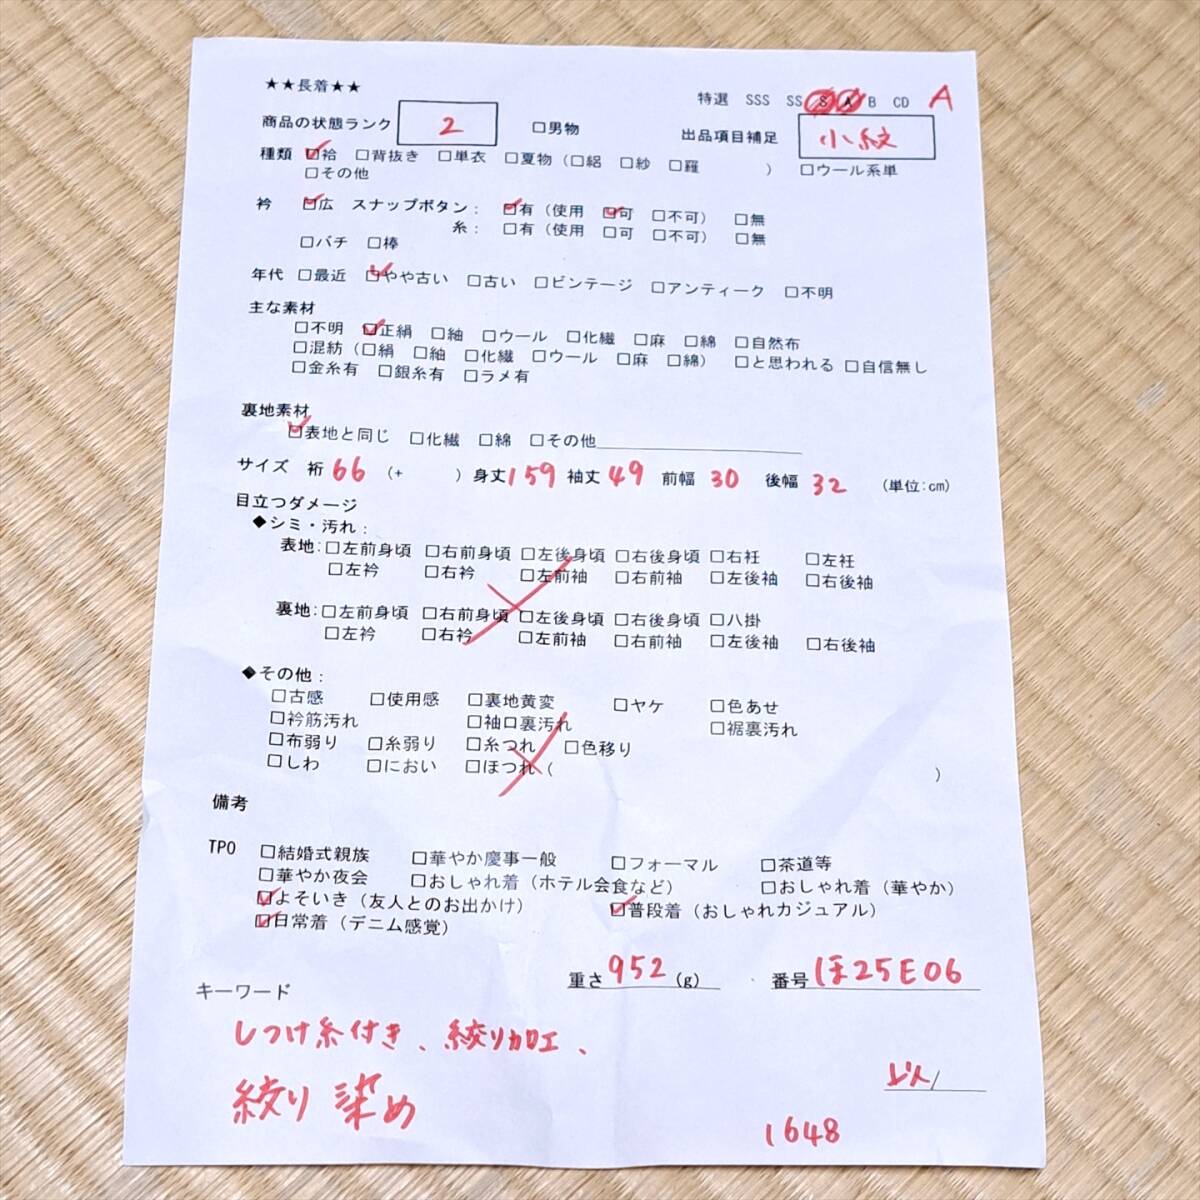 ★★長着★★
特選 SSS SS S A B CD A
商品の状態ランク 2 □男物 出品項目補足 小紋
種類 ☑袷 □背抜き □単衣 □夏物（□絽 □紗 □羅 ） □ウール系単
□その他
衿 ☑広 スナップボタン： ☑有（使用 ☑可 □不可） □無
糸： □有（使用 □可 □不可） □無
□バチ □棒
年代 □最近 ☑やや古い □古い □ビンテージ □アンティーク □不明
主な素材
□不明 ☑正絹 □紬 □ウール □化繊 □麻 □綿 □自然布
□混紡（□絹 □紬 □化繊 □ウール □麻 □綿） □と思われる □自信無し
□金糸有 □銀糸有 □ラメ有
裏地素材
☑表地と同じ □化繊 □綿 □その他
サイズ 裄 66 (+ ) 身丈 159 袖丈 49 前幅 30 後幅 32 (単位:cm)
目立つダメージ
◆シミ・汚れ：
表地:□左前身頃 □右前身頃 □左後身頃 □右後身頃 □右衽 □左衽
□左衿 □右衿 □左前袖 □右前袖 □左後袖 □右後袖
裏地:□左前身頃 □右前身頃 □左後身頃 □右後身頃 □八掛
□左衿 □右衿 □左前袖 □右前袖 □左後袖 □右後袖
◆その他：
□古感 □使用感 □裏地黄変 □ヤケ □色あせ
□衿筋汚れ □袖口裏汚れ □裾裏汚れ
□布弱り □糸弱り □糸つれ □色移り
□しわ □におい □ほつれ（ ）
備考
TPO □結婚式親族 □華やか慶事一般 □フォーマル □茶道等
□華やか夜会 □おしゃれ着（ホテル会食など） □おしゃれ着（華やか）
☑よそいき（友人とのお出かけ） ☑普段着（おしゃれカジュアル）
☑日常着（デニム感覚）
重さ 952 (g) 番号 ほ25E06
キーワード
しつけ糸付き、絞り加工、
絞り染め
1648